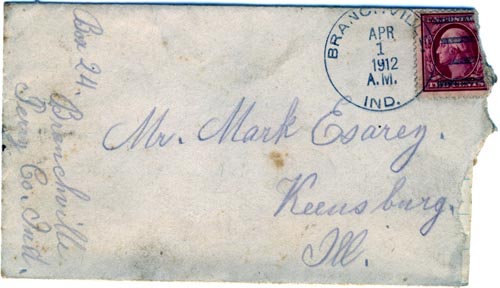 Box 24.
Branchville
Perry Co. Ind.
BRANCHVILL
APR
1
1912
A.M.
IND.
Mr. Mark Esarey.
Keensburg.
Ill.